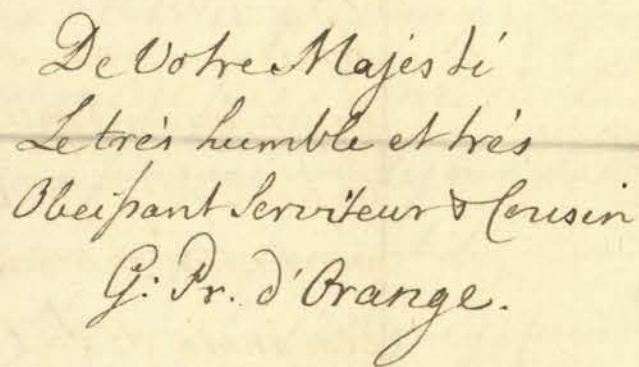 De Votre Majesté
Le trés humble et trés
Obeissant Serviteur & Cousin
G: Pr. d'Orange.